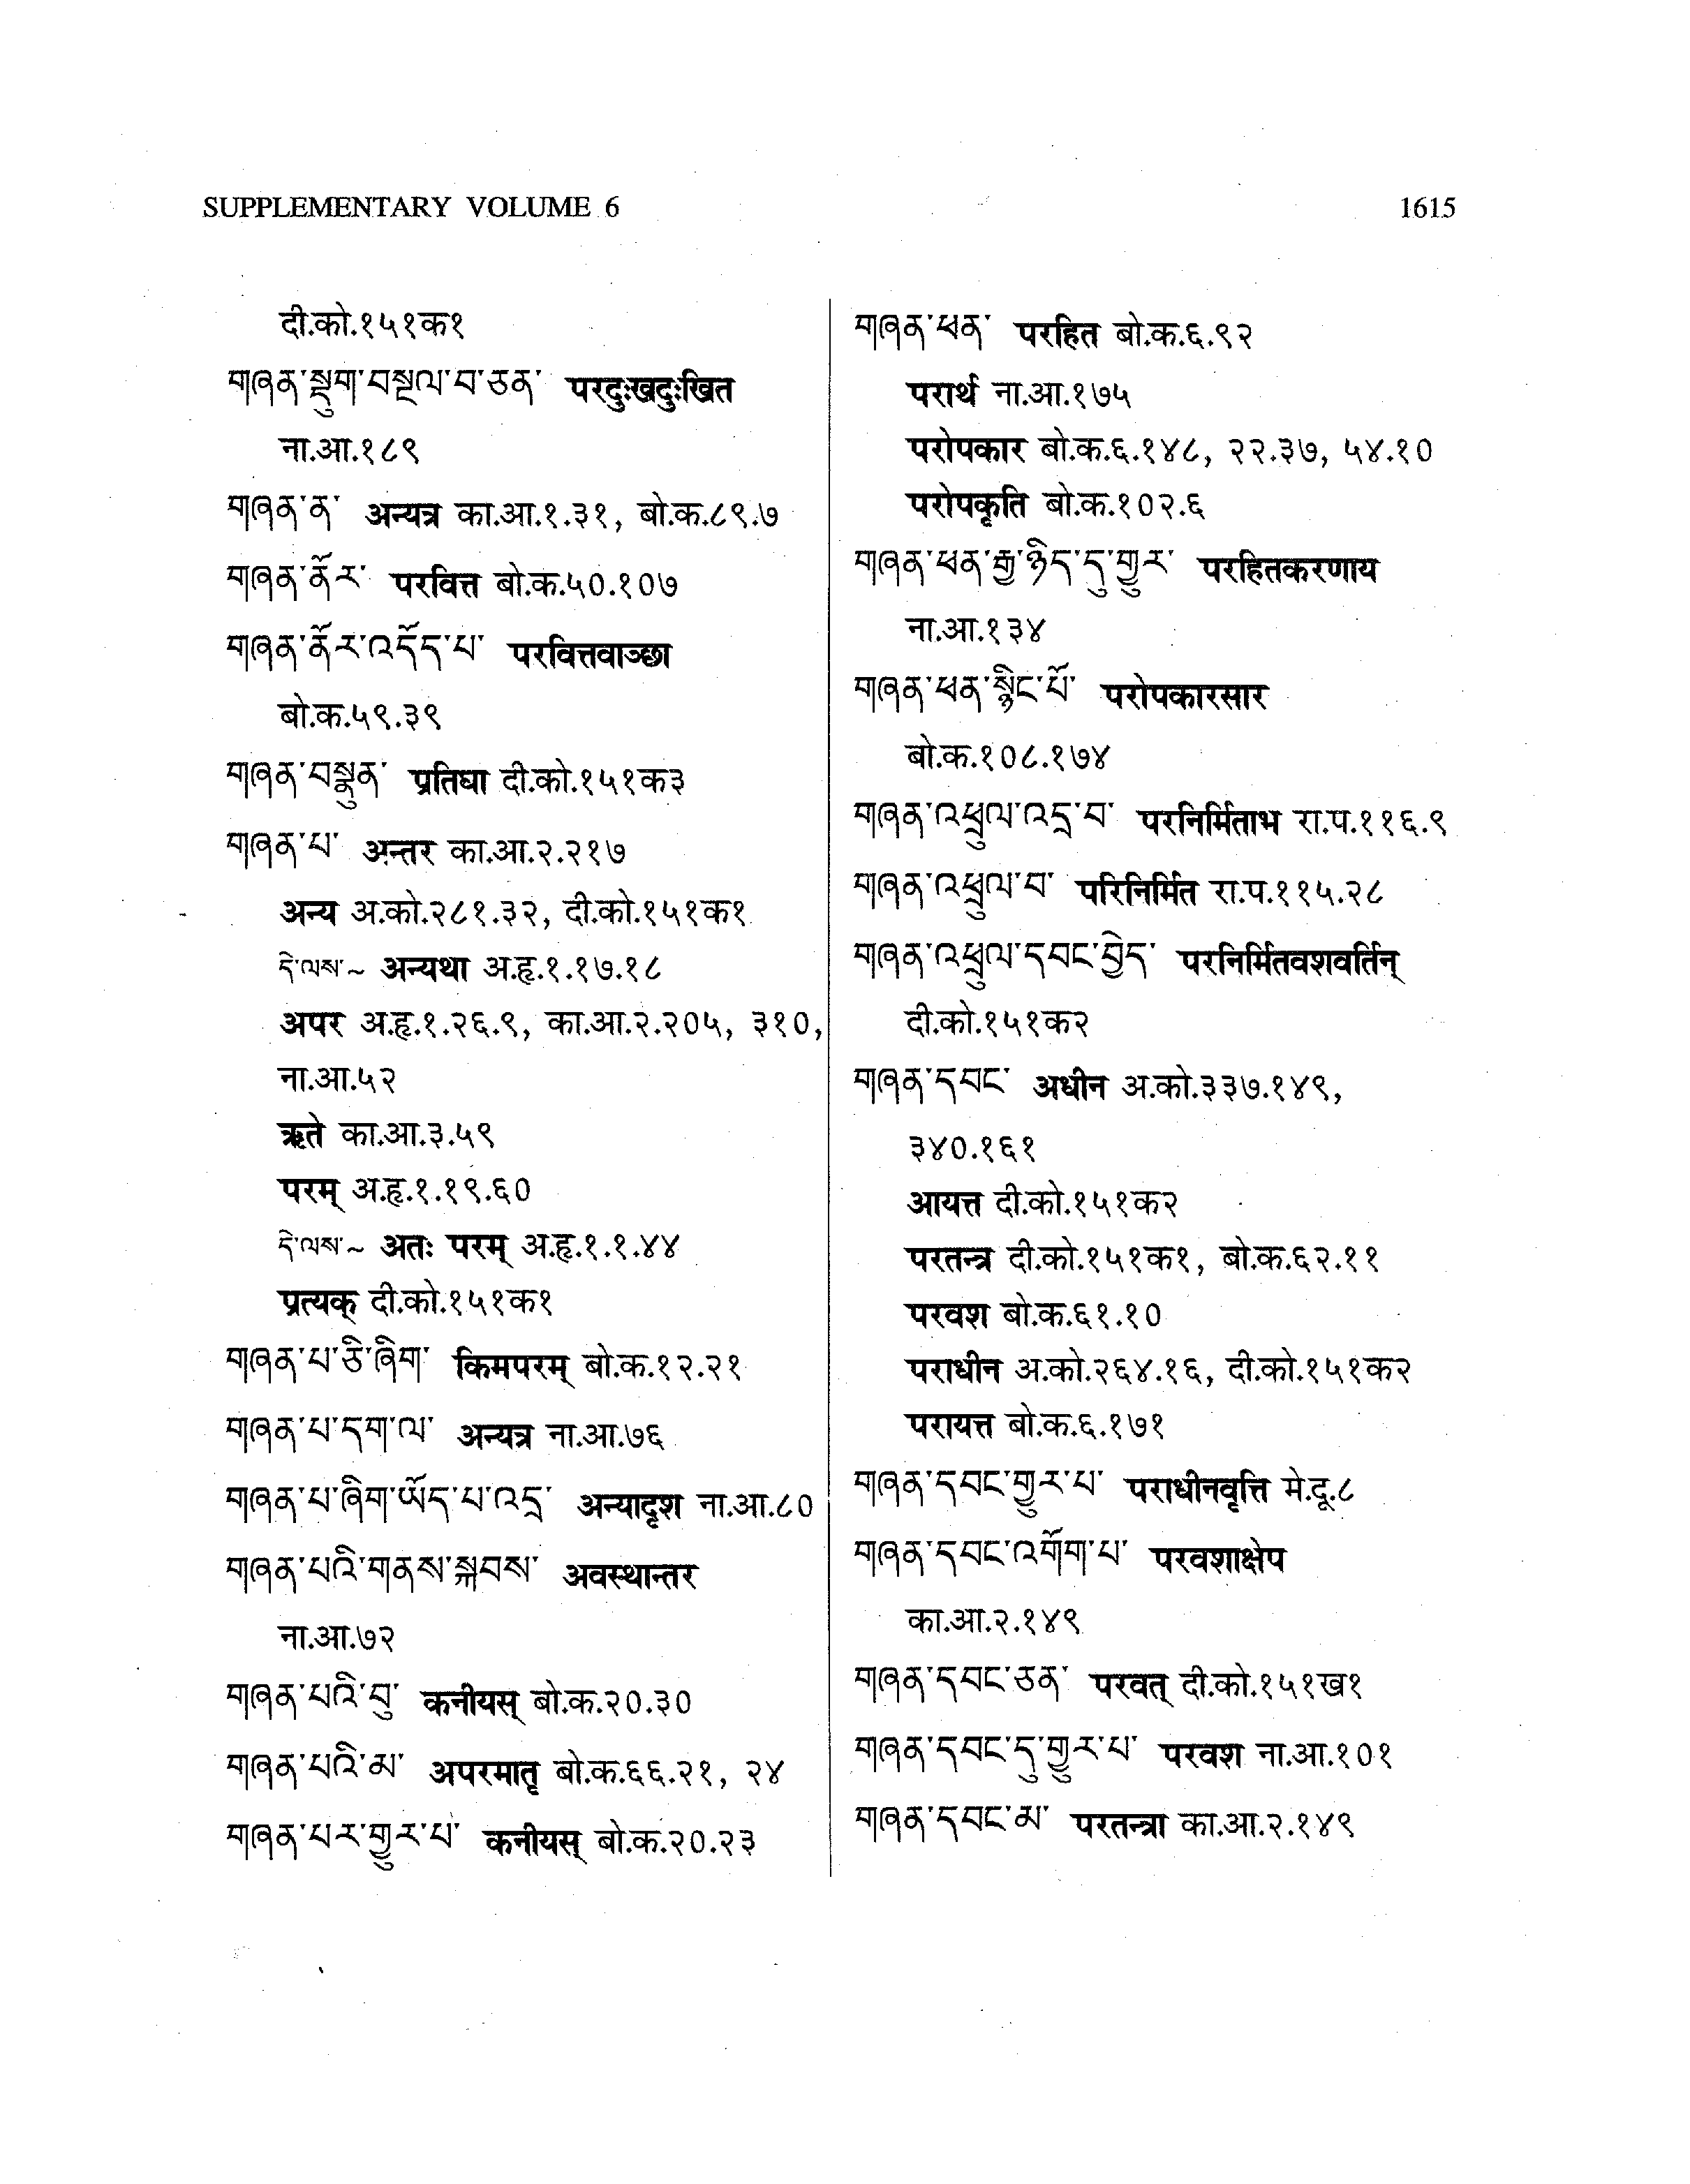 SUPPLEMENTARY VOLUME 6 1615
दी.को.१५१क१
གཞན་སྡུག་བསྔལ་བ་ཅན་ परदुःखदुःखित
ना.आ.१८९
གཞན་ན་ अन्यत्र का.आ.१.३१, बो.क.८९.७
གཞན་ནོར་ परवित्त बो.क.५०.१०७
གཞན་ནོར་འདོད་པ་ परवित्तवाञ्छा
बो.क.५९.३९
གཞན་བསྣུན་ प्रतिघा दी.को.१५१क३
གཞན་པ་ अन्तर का.आ.२.२१७
अन्य अ.को.२८१.३२, दी.को.१५१क१
དེ་ལས་~ अन्यथा अ.हृ.१.१७.१८
अपर अ.हृ.१.२६.९, का.आ.२.२०५, ३१०,
ना.आ.५२
ऋते का.आ.३.५९
परम् अ.हृ.१.१९.६०
དེ་ལས་~ अतः परम् अ.हृ.१.१.४४
प्रत्यक् दी.को.१५१क१
གཞན་པ་ཅི་ཞིག་ किमपरम् बो.क.१२.२१
གཞན་པ་དག་ལ་ अन्यत्र ना.आ.७६
གཞན་པ་ཞིག་ཡོད་པ་འདྲ་ अन्यादृश ना.आ.८०
གཞན་པའི་གནས་སྐབས་ अवस्थान्तर
ना.आ.७२
གཞན་པའི་བུ་ कनीयस् बो.क.२०.३०
གཞན་པའི་མ་ अपरमातृ बो.क.६६.२१, २४
གཞན་པར་གྱུར་པ་ कनीयस् बो.क.२०.२३
གཞན་ཕན་ परहित बो.क.६.९२
परार्थ ना.आ.१७५
परोपकार बो.क.६.१४८, २२.३७, ५४.१०
परोपकृति बो.क.१०२.६
གཞན་ཕན་རྒྱ་ཉིད་དུ་གྱུར་ परहितकरणाय
ना.आ.१३४
གཞན་ཕན་སྙིང་པོ་ परोपकारसार
बो.क.१०८.१७४
གཞན་འཕྲུལ་འདྲ་བ་ परनिर्मिताभ रा.प.११६.९
གཞན་འཕྲུལ་བ་ परिनिर्मित रा.प.११५.२८
གཞན་འཕྲུལ་དབང་བྱེད་ परनिर्मितवशवर्तिन्
दी.को.१५१क२
གཞན་དབང་ अधीन अ.को.३३७.१४९,
३४०.१६१
आयत्त दी.को.१५१क२
परतन्त्र दी.को.१५१क१, बो.क.६२.११
परवश बो.क.६१.१०
पराधीन अ.को.२६४.१६, दी.को.१५१क२
परायत्त बो.क.६.१७१
གཞན་དབང་གྱུར་པ་ पराधीनवृत्ति मे.दू.८
གཞན་དབང་འགོག་པ་ परवशाक्षेप
का.आ.२.१४९
གཞན་དབང་ཅན་ परवत् दी.को.१५१ख१
གཞན་དབང་དུ་གྱུར་པ་ परवश ना.आ.१०१
གཞན་དབང་མ་ परतन्त्रा का.आ.२.१४९